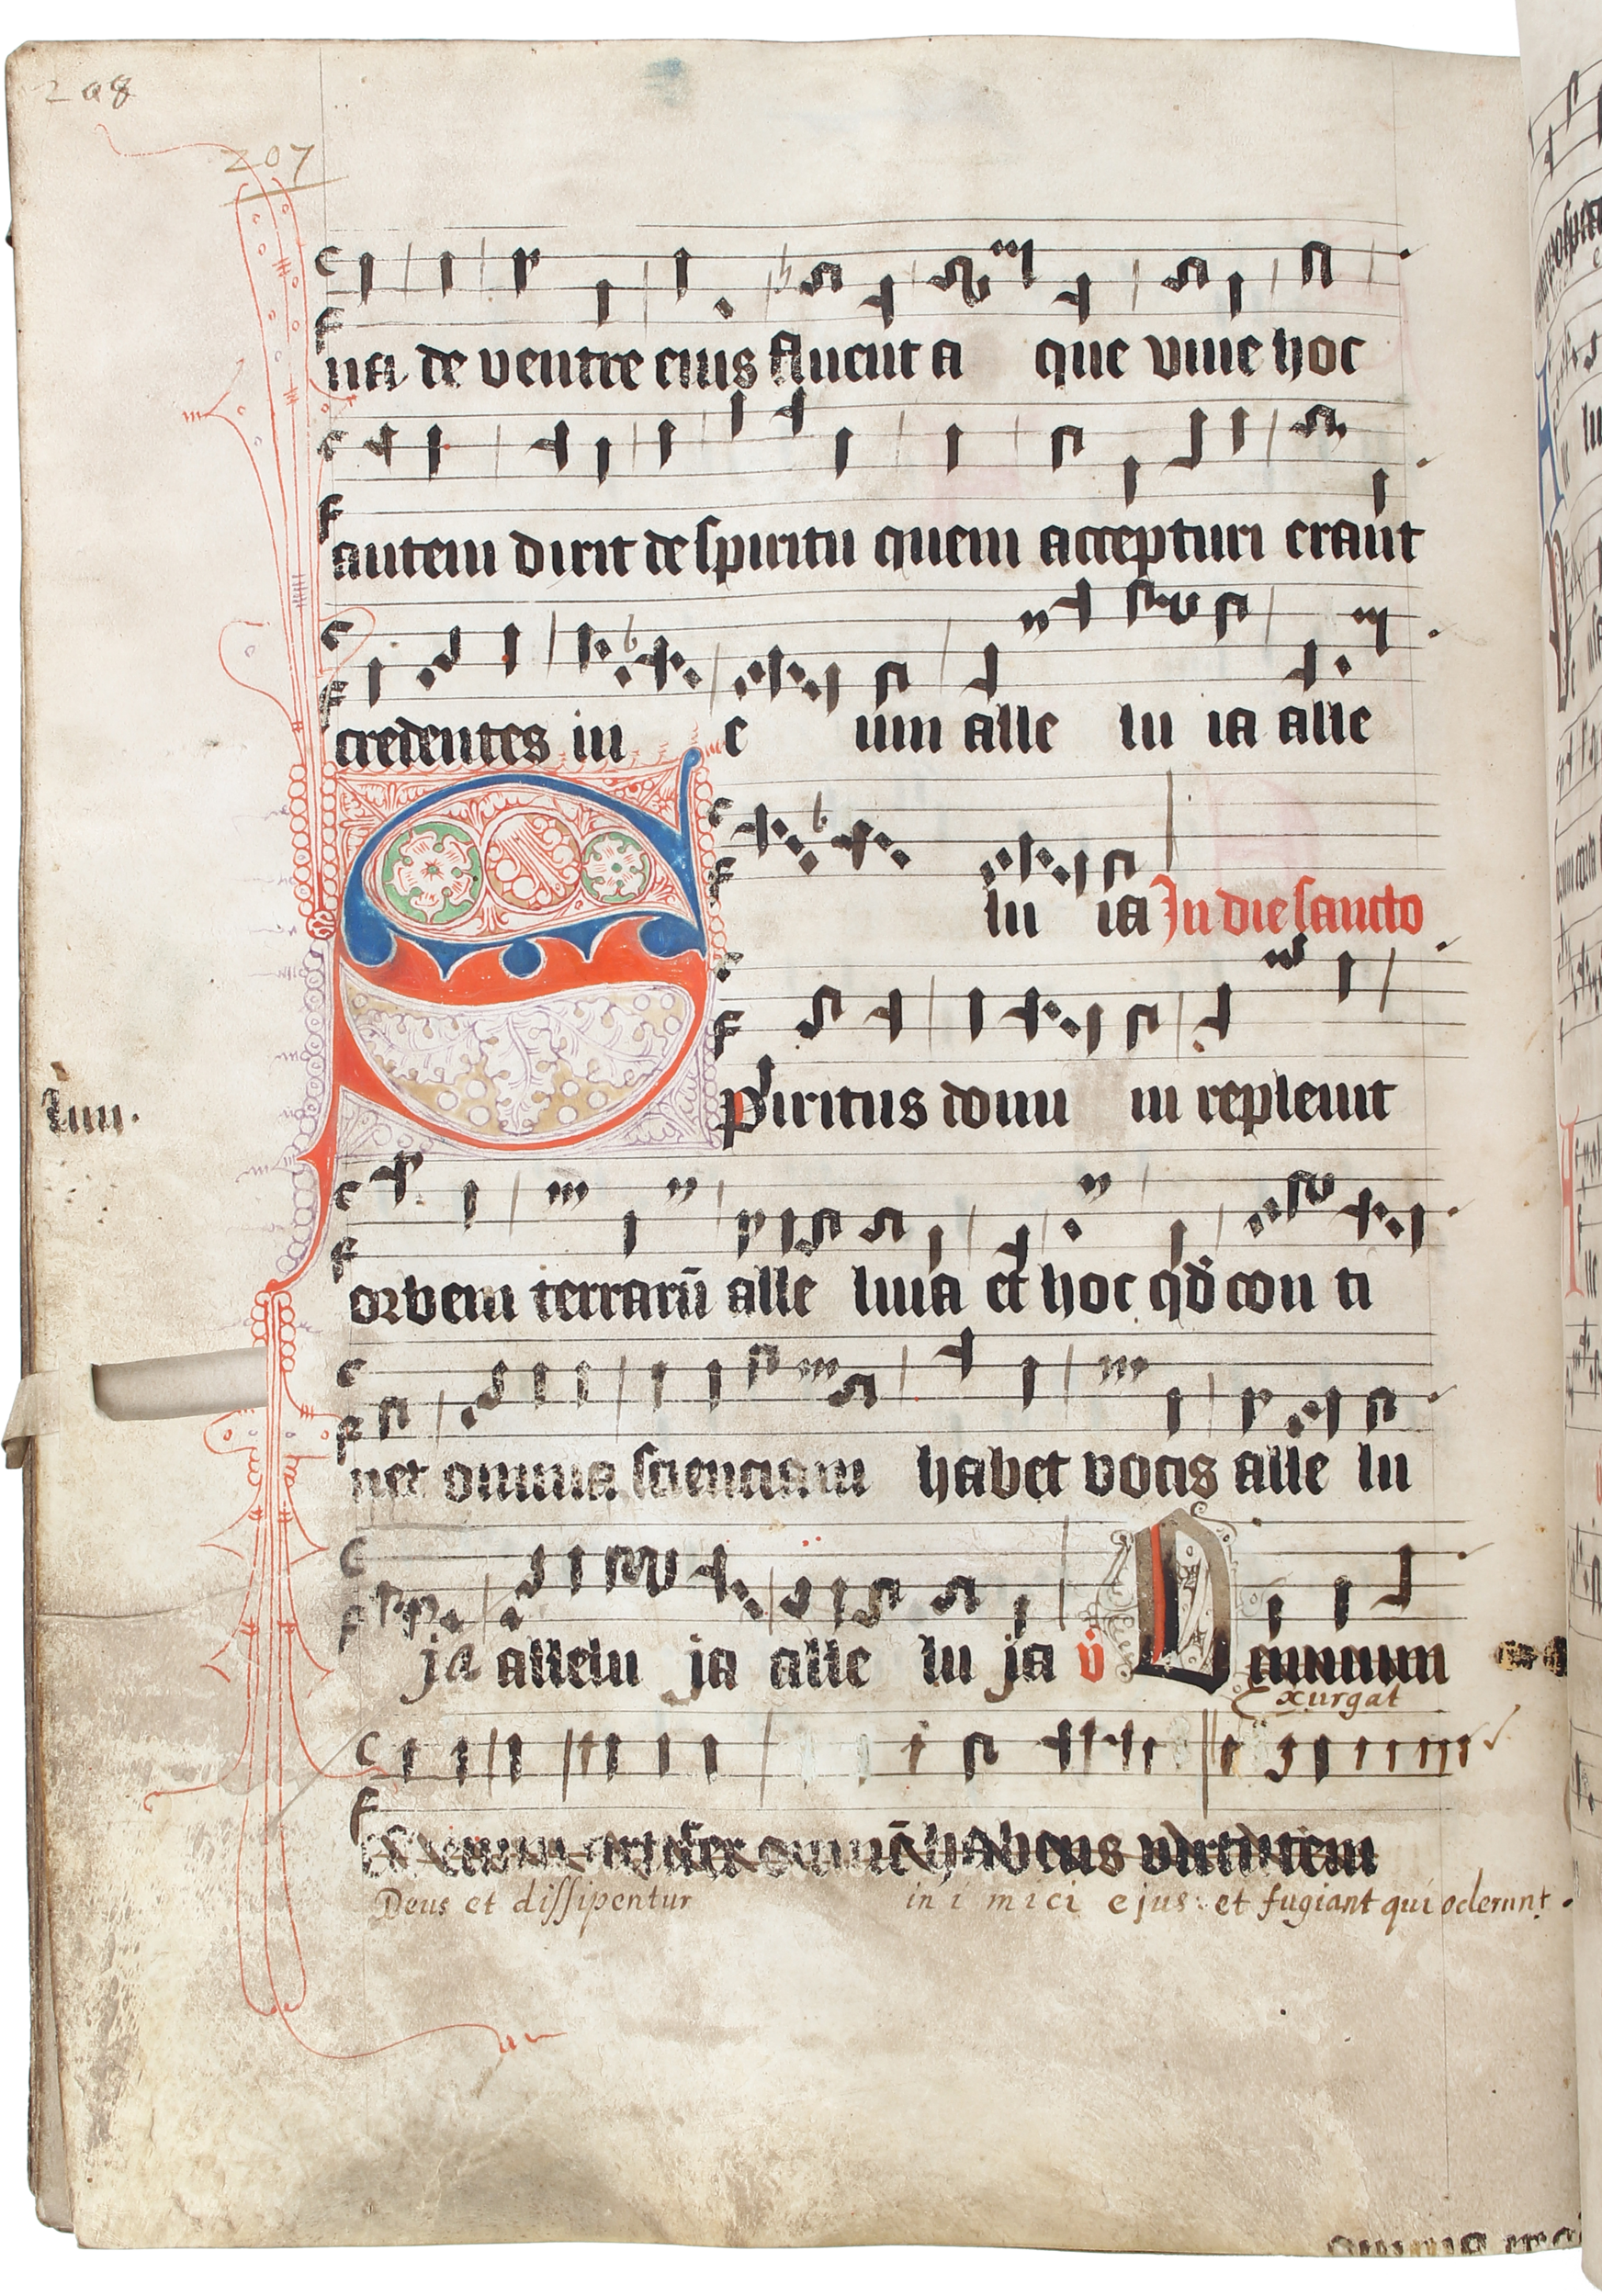 208
207
na de ventre eius fluent a que viue hoc
autem dixit de spiritu quem accepturi erant
credentes in e um alle lu ia alle
lu ia In die sancto
Spiritus domi ni repleuit
orbem terrarū alle luia et hoc qđ con ti
net omnia scienciam habet vocis alle lu
ja allelu ja alle lu ja v̈ Omnium
Exurgat
est enim artifex omnē habens virtutem
Deus et dissipentur in i mici ejus: et fugiant qui oderunt.